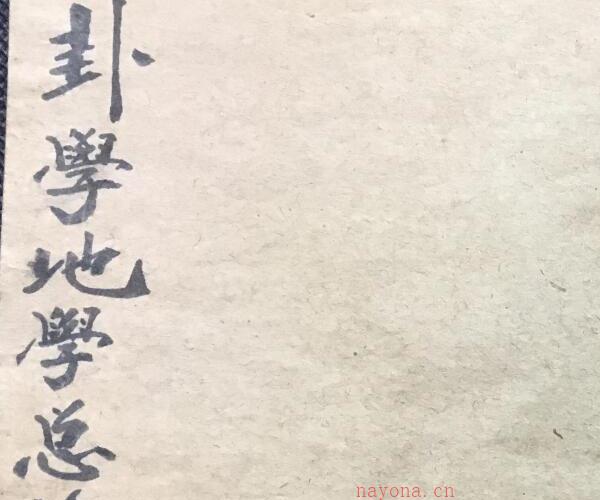 卦學地學总
nayona.cn